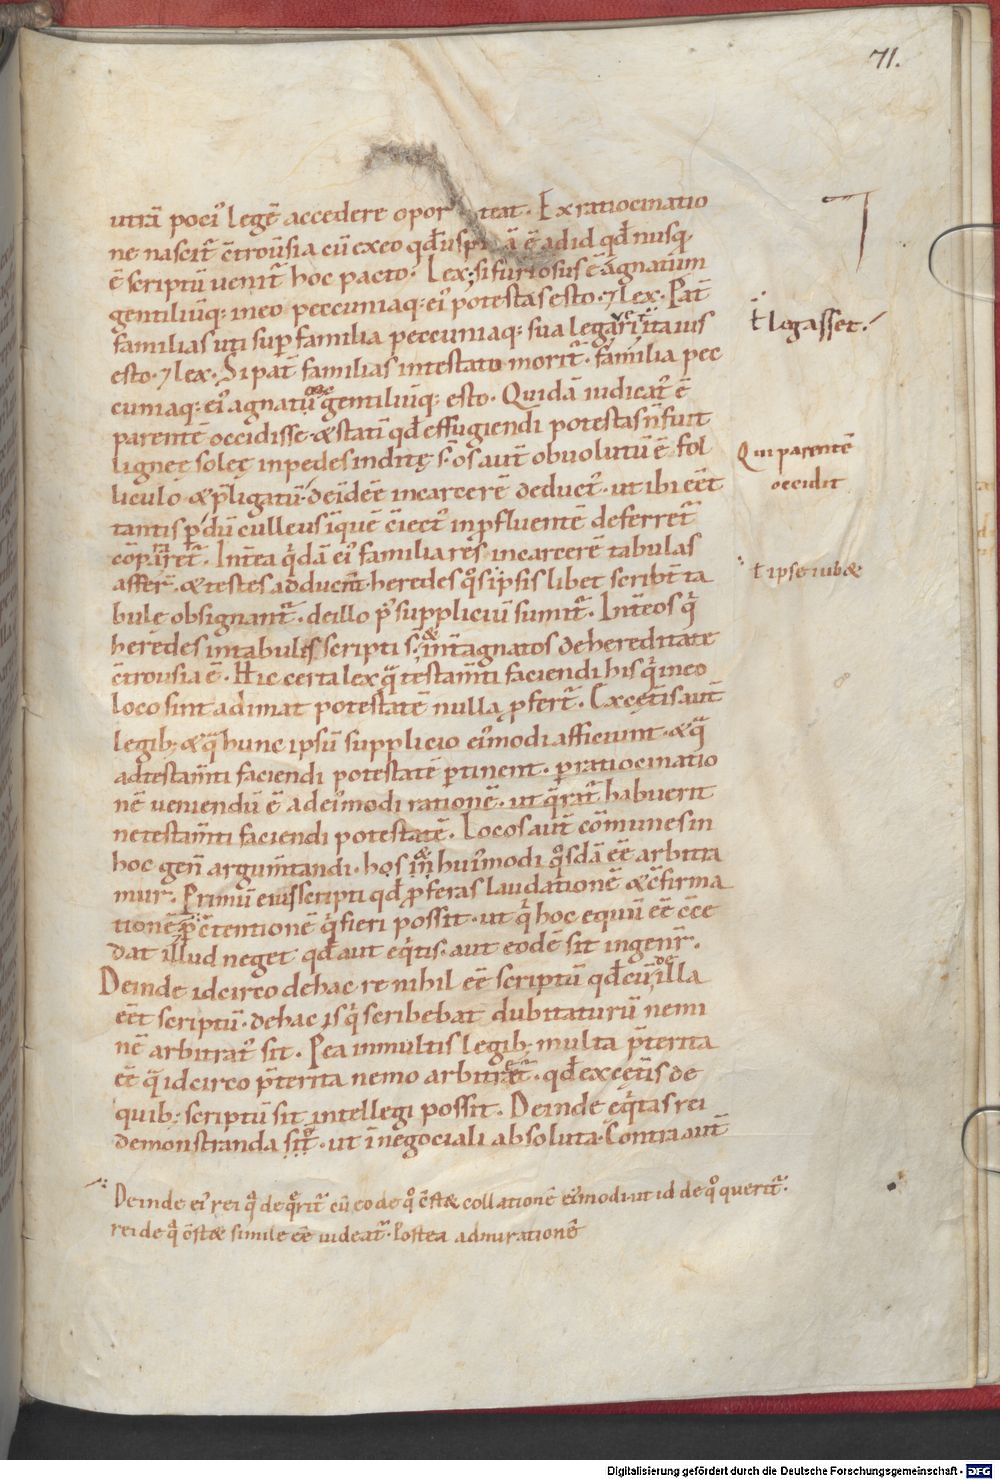 71.
utrā poci᷒ legē accedere opor teat. Ex ratiocinatio
ne nascit̄ c̄trou̅sia cū ex eo qd̄ uspi ā ē ad id qd̄ nusq̇
ē scriptū uenit̄ hoc pacto. Lex; si furiosus ē agnatūm
gentiliūq: in eo peccuniaq: ei᷒ potestas esto. ⁊ Lex. Pat̄
familias uti sup̱ familia peccuniaq: sua legarit̄ ita ius
esto. ⁊ lex. Si pat̄ familias intestato morit̄. familia pec
cuniaq: ei᷒ agnatū gentiliūq: esto. Quidā iudicat᷒ ē
parentē occidisse. & statī qd̄ effugiendi potestas n̄ fuit
ligneę soleę in pedes inditę s̄. os aut̄ obuolutū ē fol
liculo & p̄ligatū. deīdē ē in carcerē deduct᷒. ut ibi eēt
tantisp̱ dū culleus ī quē c̄iect᷒ in p̱fluentē deferret̄
cōpararet̄. Int̄ea q̇dā ei᷒ familiares in carcerē tabulas
affer̄. & testes adducūt heredes q̊s ipsis libet scribt̄ ta
bule obsignant̄. de illo p᷒ suppliciū sumit̄. Int̄ eos q̇
heredes in tabulis scripti s̄. & int̄ agnatos de hereditate
c̄trousia ē. Hic certa lex q̄ testam̄ti faciendi his q̇ in eo
loco sint adimat potestatē nulla p̱fert̄. Ex cęt̄is aut̄
legib; & q̄ hunc ipsū supplicio ei᷒modi afficiunt. & q̄
ad testam̄ti faciendi potestatē p̱tinent. p̱ ratiocinatio
nē ueniendū ē ad ei᷒modi rationē. ut q̄rat̄ habuerit
ne testam̄ti faciendi potestatē. Locos aut̄ cōmunes in
hoc gen̄ argum̄tandi. hos & hui᷒modi q̊sdā eē arbitra
mur. Primū eius scripti qd̄ p̱feras laudationē & c̄firma
tionē p̱ c̄tentionē q̇ fieri possit. ut q̇ hoc equū eē c̄ce
dat illud neget qd̄ aut eq̇us. aut eodē sit in gener̄.
Deinde idcirco de hac re nihil eē scriptū qd̄ cū de illa
eēt scriptū. de hac is q̇ scribebat dubitaturū nemi
nē arbitrat᷒ sit. P̱ea in multis legib; multa p̄terita
eē q̄ idcirco p̄terita nemo arbitret̄. qd̄ ex cęt̄is de
quib; scriptū sit intellegi possit. Deinde eq̇tas rei
demonstranda sit̄. ut ī negociali absoluta. Contra aut̄
Deinde ei᷒ rei q̄ de q̄rit̄ cū eo de q̊ c̄stet collationē ei᷒modi ut id de q̊ querit̄.
rei de q̄ c̄stet simile eē uideat̄. Postea admirationē
ł legasset.
Qui parentē
occidit
ł ipse iub&